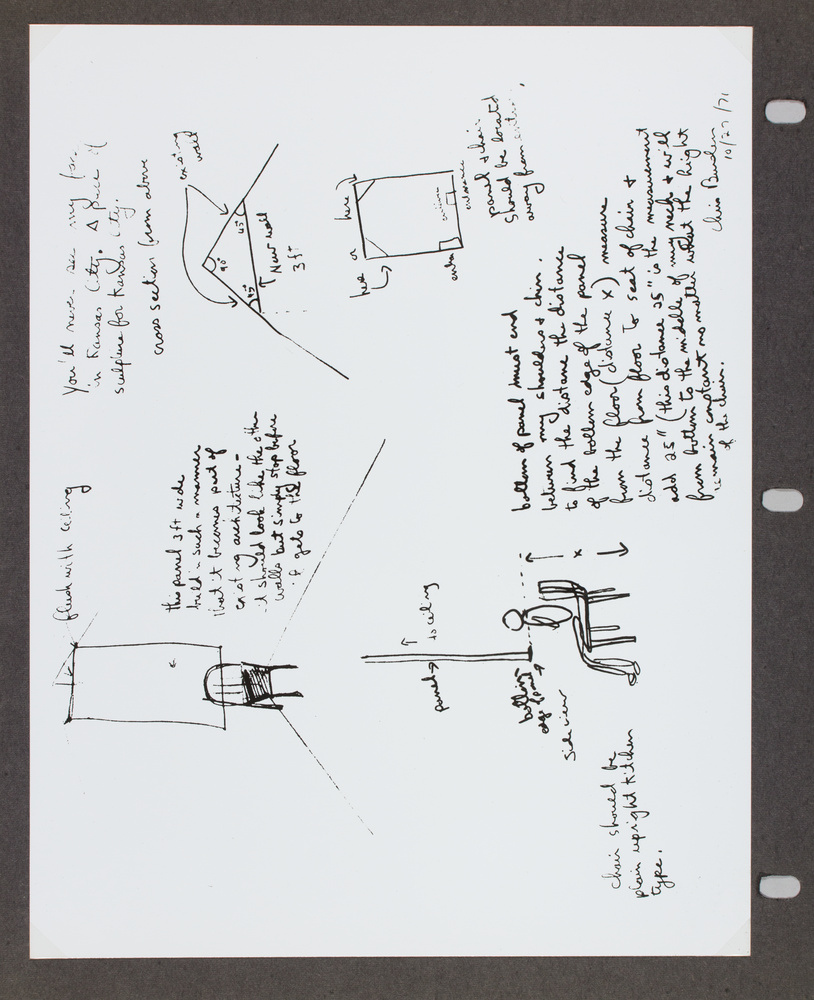 You'll never see my face
in Kansas City. A piece of
sculpture for Kansas City.
cross section from above
existing
wall
90°
45°
45°
New wall
3 ft
here or here
entrance
entrance
panel & chair
should be located
away from
flush with ceiling
this panel 3 ft wide
build in such a manner
that it becomes part of
existing architecture –
it should look like the other
walls but simply stop before
it gets to the floor
panel
to ceiling
bottom
edge
side view
x
bottom of panel must end
between my shoulders & chin.
to find the distance the distance
of the bottom edge of the panel
from the floor (distance x) measure
distance from floor to seat of chair &
add 25" (this distance 25" is the measurement
from bottom to the middle of my neck & will
remain constant no matter what the height
of the chair.
Chris Burden
10/27/71
chair should be
plain upright kitchen
type.